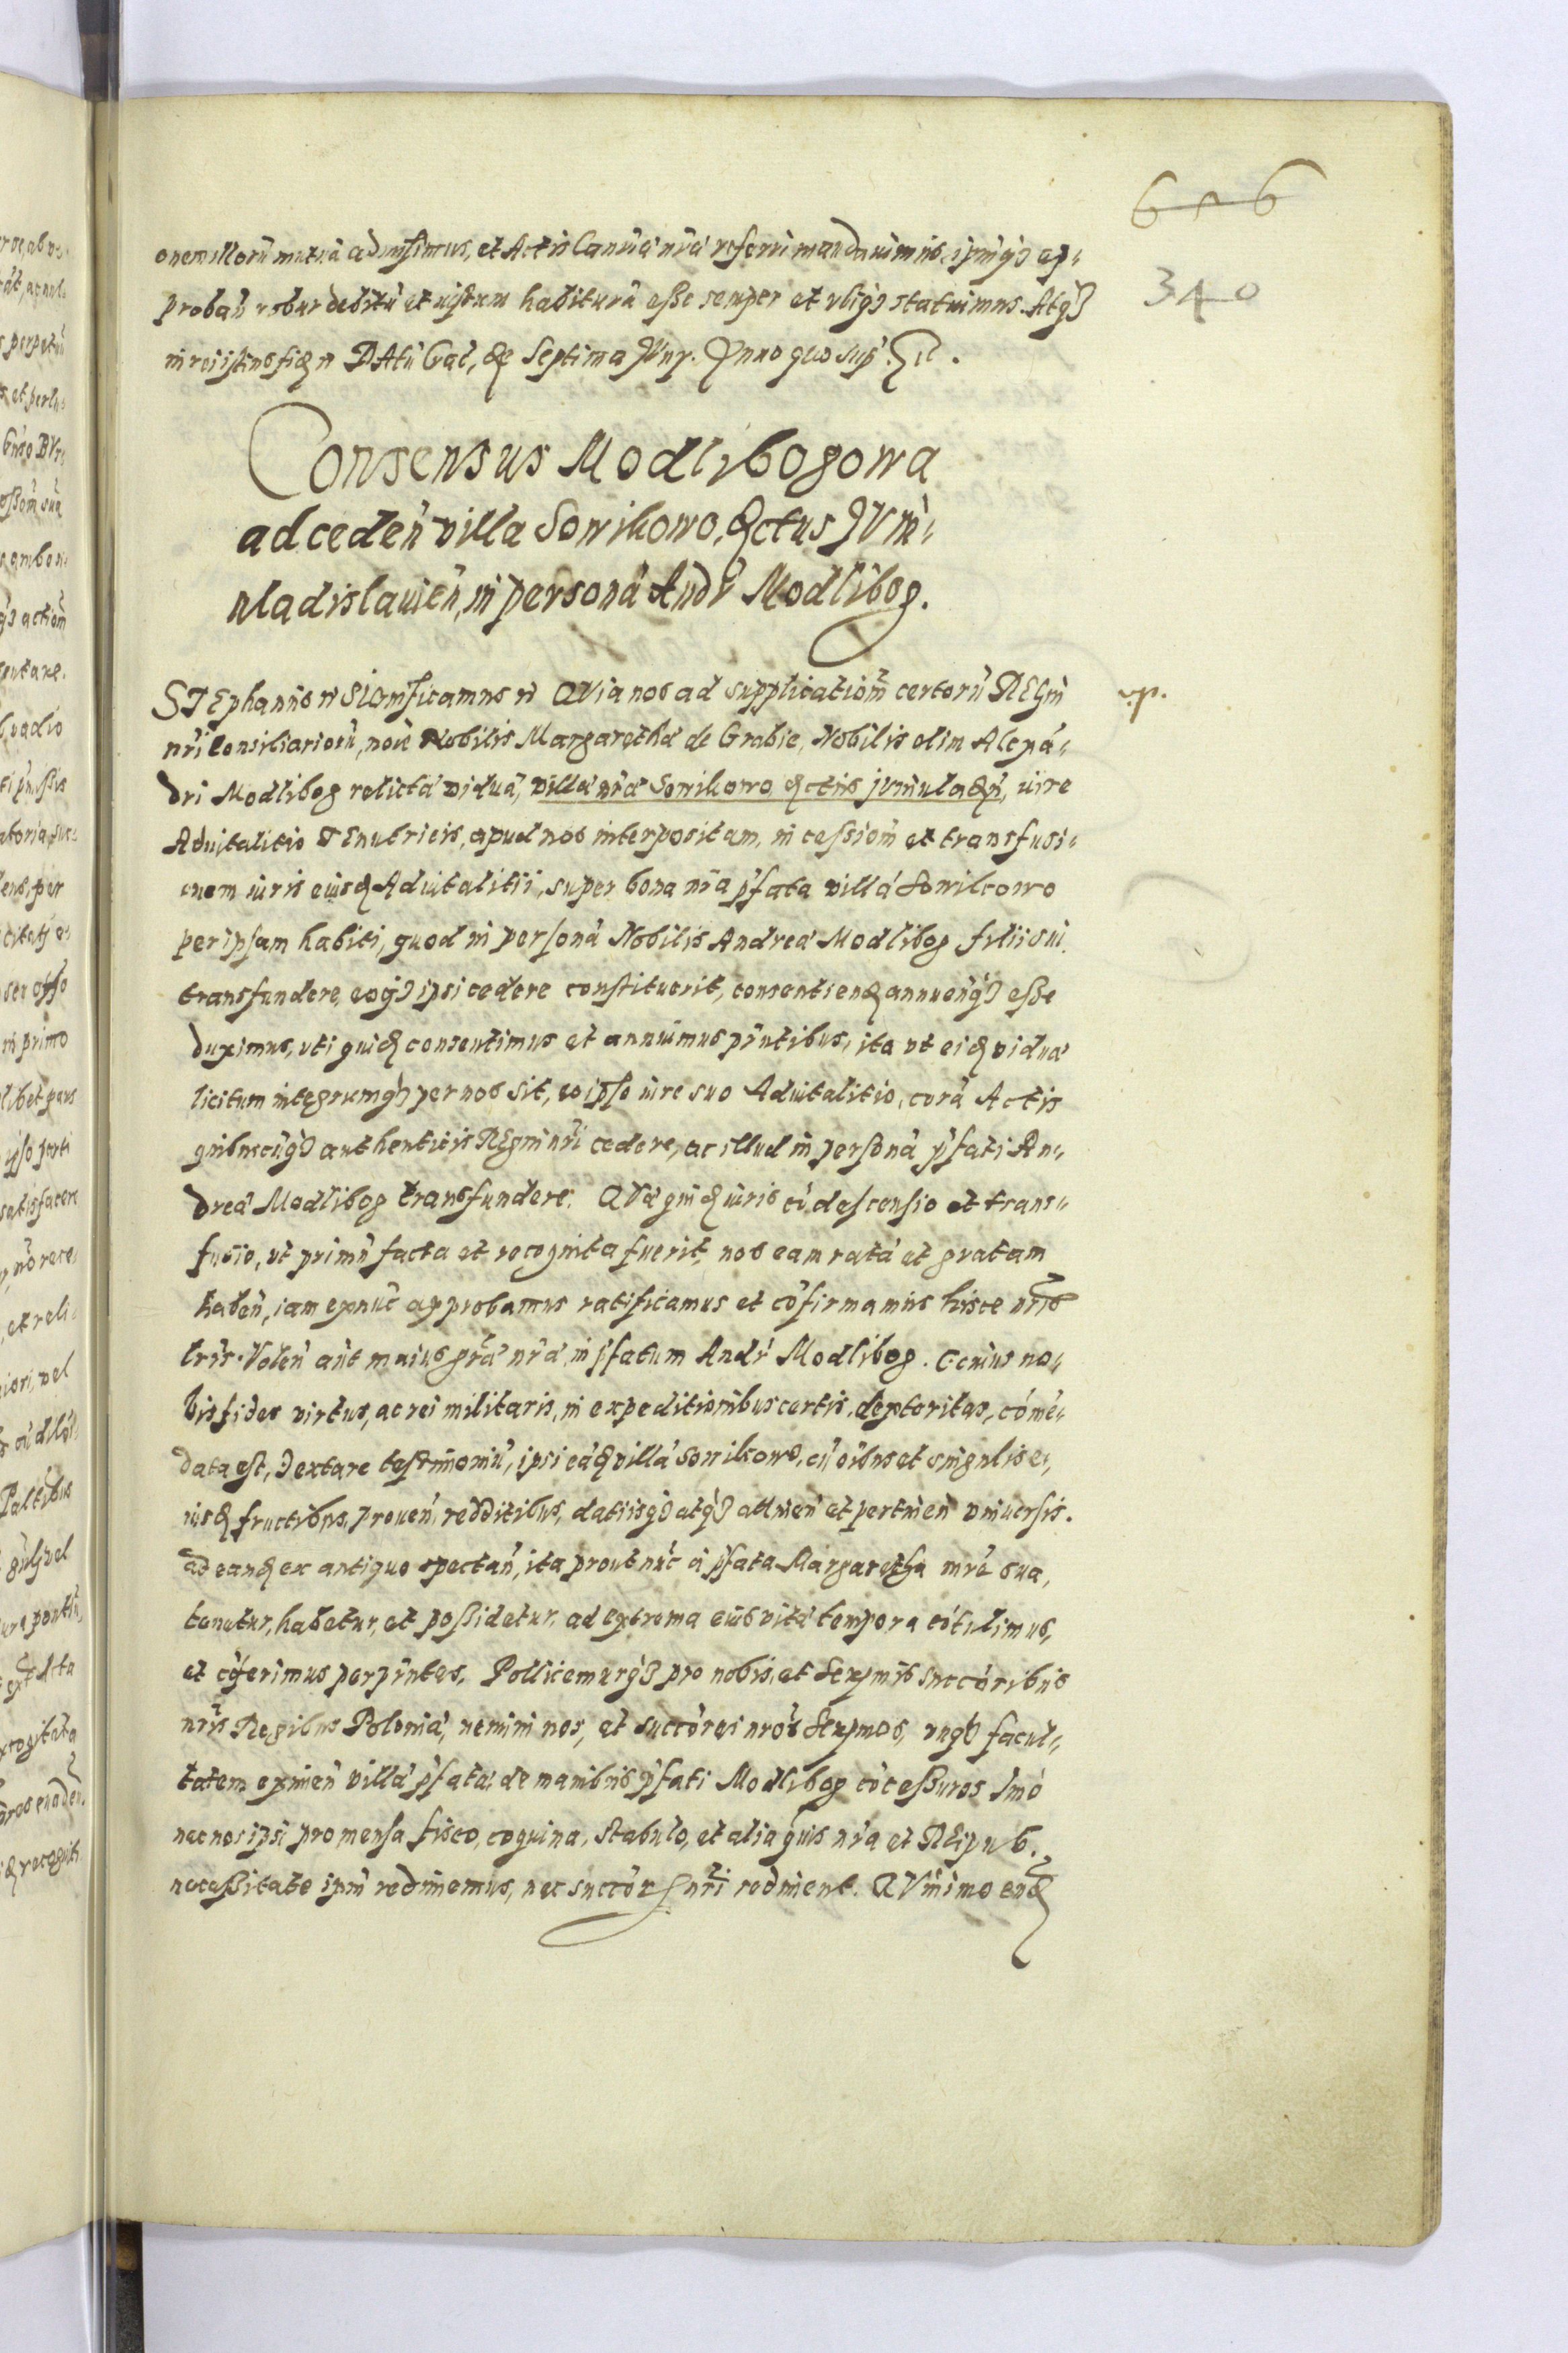 606
340
onem illorũ mutuã admisimus, et Actis Cancellã nr̃a referri mandauimus ipm̃q3 ap-
proban̄ robur debitũ et iustum habiturũ esse semper et vbiq3 statuimus. Atq3
in rei istius fidem DAtũ Ged, die Septima Juny. Anno quo sup̃.
Consensus Modlibogowa
ad ceden̄ villa Sowikowo, Dctus Jvni-
wladislauien̄, in personã Andr̃ Modlibog.
STEphanus SIGnificamus QVia nos ad supplicatiom̃ certorũ REGni
nr̃i Consiliariorũ, noiẽ Nobilis Margarethæ de Grabie, Nobilis olim Alexã-
v.p.
dri Modlibog relictæ viduæ, villæ nr̃æ Sowikowo Dctus juniuladẽn, iure
Aduitalitio TEnutricis, apud nos interpositam, in cessiom̃ et transfusi-
onem iuris eiusd Aduitalitii, super bona nr̃a p̃fata villã Sowikowo
per ipsam habiti, quod in personã Nobilis Andreæ Modlibog filii sui
transfundere, eoq3 ipsi cedere constituerit, consentiend annuenq3 esse
duximus, vti quid consentimus et annuimus p̃ntibus, ita vt eid viduæ
licitum integrumq3 per nos sit, eo ipso iure suo Aduitalitio, corã Actis
quibuscũq3 authenticis REgni nr̃i cedere, ac illud in personã p̃fati An-
dreæ Modlibog transfundere. QVæ quid iuris cũ descensio et trans-
fusio, vt primũ facta et recognita fuerit, nos eam ratã et gratam
haben̄, iam exnũc approbamus ratificamus et cõfirmamus hisce nr̃is
lr̃is. Volen̄ aũt maius gr̃a nr̃a in p̃fatum Andr̃ Modlibog. Cuius no-
bis fides virtus, ac rei militaris, in expeditionibus certis, dexteritas, cõmẽ-
data est, extare testimoniũ, ipsi eãd villã Sowikowo, cũ oĩbus et singulis e-
iusd fructibus, prouen̄, redditibus, datiisq3 atq3 attinen̄ et pertinen̄ vniuersis.
ad eand ex antiquo spectan̄, ita prout nũc à p̃fata Margaretha mr̃e sua,
tenetur, habetur, et possidetur, ad extrema eius vitæ tempora cõtulimus,
et cõferimus per p̃ntes. Pollicemurq3 pro nobis, et Serẽmis succõribus
nr̃is Regibus Poloniæ, nemini nos, et succõres nr̃os Serẽmos, vnq3 facul-
tatem eximen̄ villã p̃fatã, de manibus p̃fati Modlibog cõcessuros Imò
nec nos ipsi pro mensa fisco, coquina, stabulo, et alia quis nr̃a et REipub.
necessitate ipm̃ redimemus, nec succõres nr̃i rediment. QVinimo eund